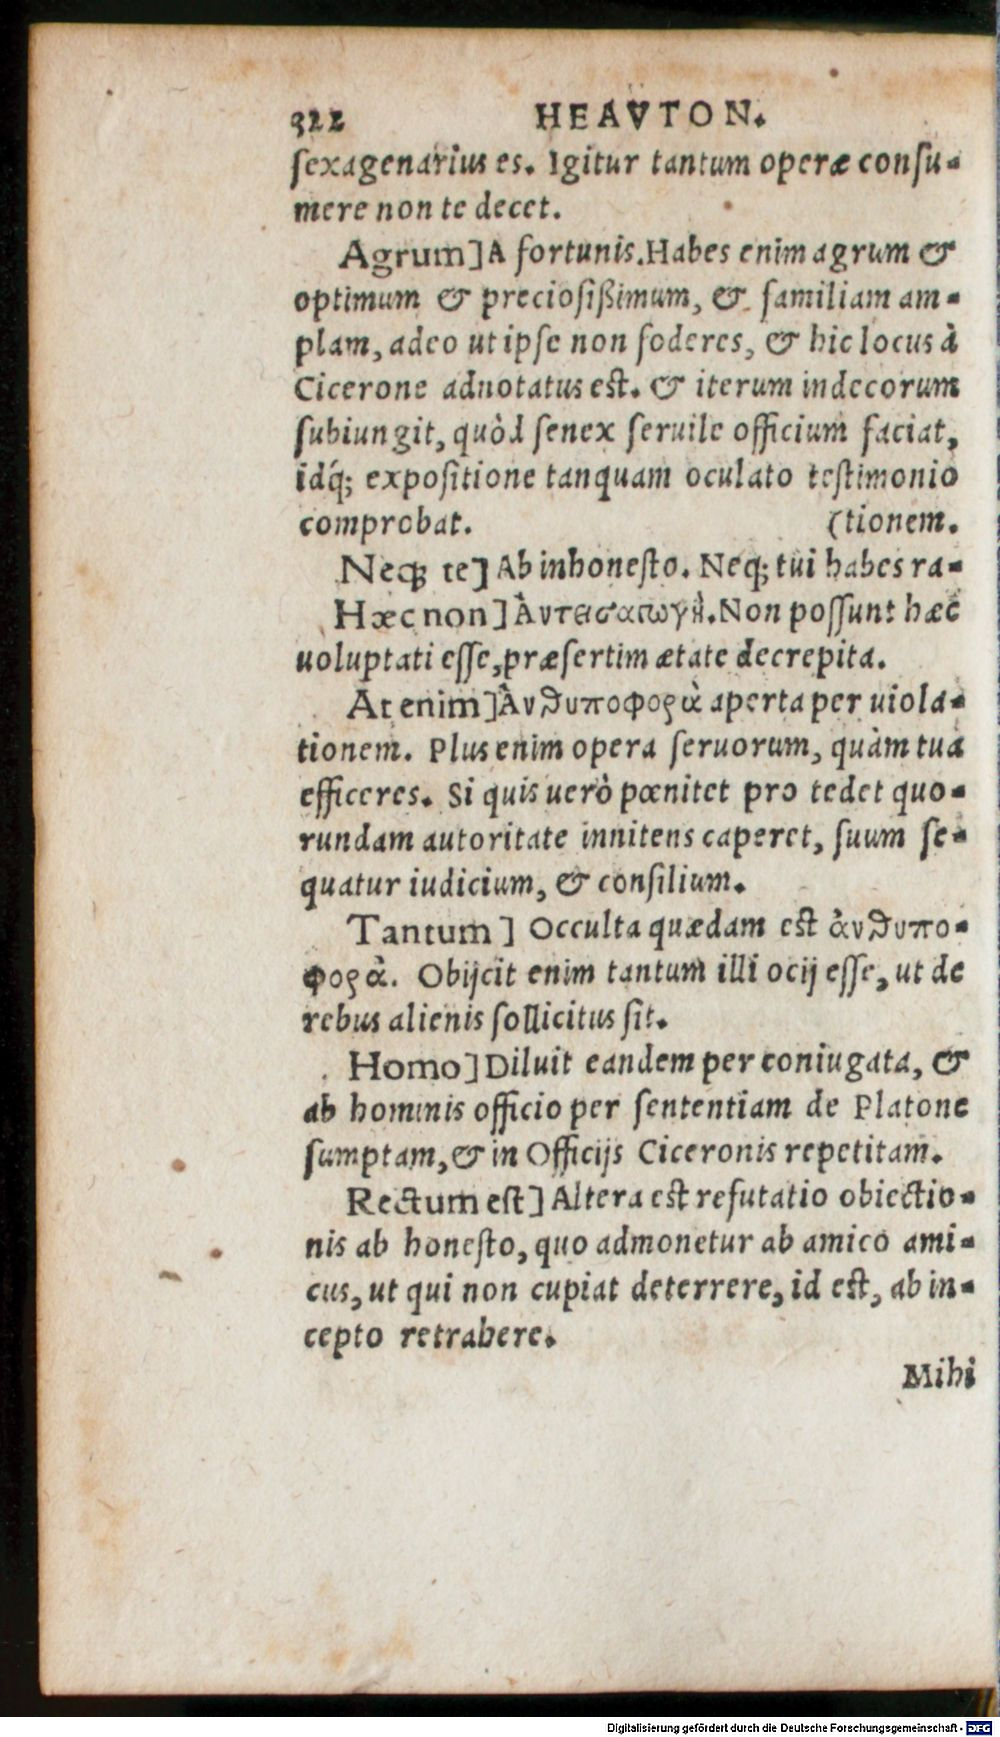 322 HEAVTON.
sexagenarius es. Igitur tantum operæ consu-
mere non te decet.
Agrum] A fortunis. Habes enim agrum &
optimum & preciosißimum, & familiam am-
plam, adeo ut ipse non foderes, & hic locus à
Cicerone adnotatus est. & iterum indecorum
subiungit, quòd senex seruile officium faciat,
idq́; expositione tanquam oculato testimonio
comprobat. (tionem.
Neq; te] Ab inhonesto. Neq; tui habes ra-
Hæc non] Non possunt hæc
uoluptati esse, præsertim ætate decrepita.
At enim] Ἀνθυποφορὰ aperta per uiola-
tionem. Plus enim opera seruorum, quàm tua
efficeres. Si quis uerò pœnitet pro tedet quo-
rundam autoritate innitens caperet, suum se-
quatur iudicium, & consilium.
Tantum] Occulta quædam est ἀνθυπο-
φορὰ. Obijcit enim tantum illi ocij esse, ut de
rebus alienis sollicitus sit.
Homo] Diluit eandem per coniugata, &
ab hominis officio per sententiam de Platone
sumptam, & in Officijs Ciceronis repetitam.
Rectum est] Altera est refutatio obiectio-
nis ab honesto, quo admonetur ab amico ami-
cus, ut qui non cupiat deterrere, id est, ab in-
cepto retrahere.
Mihi
Digitalisierung gefördert durch die Deutsche Forschungsgemeinschaft - DFG